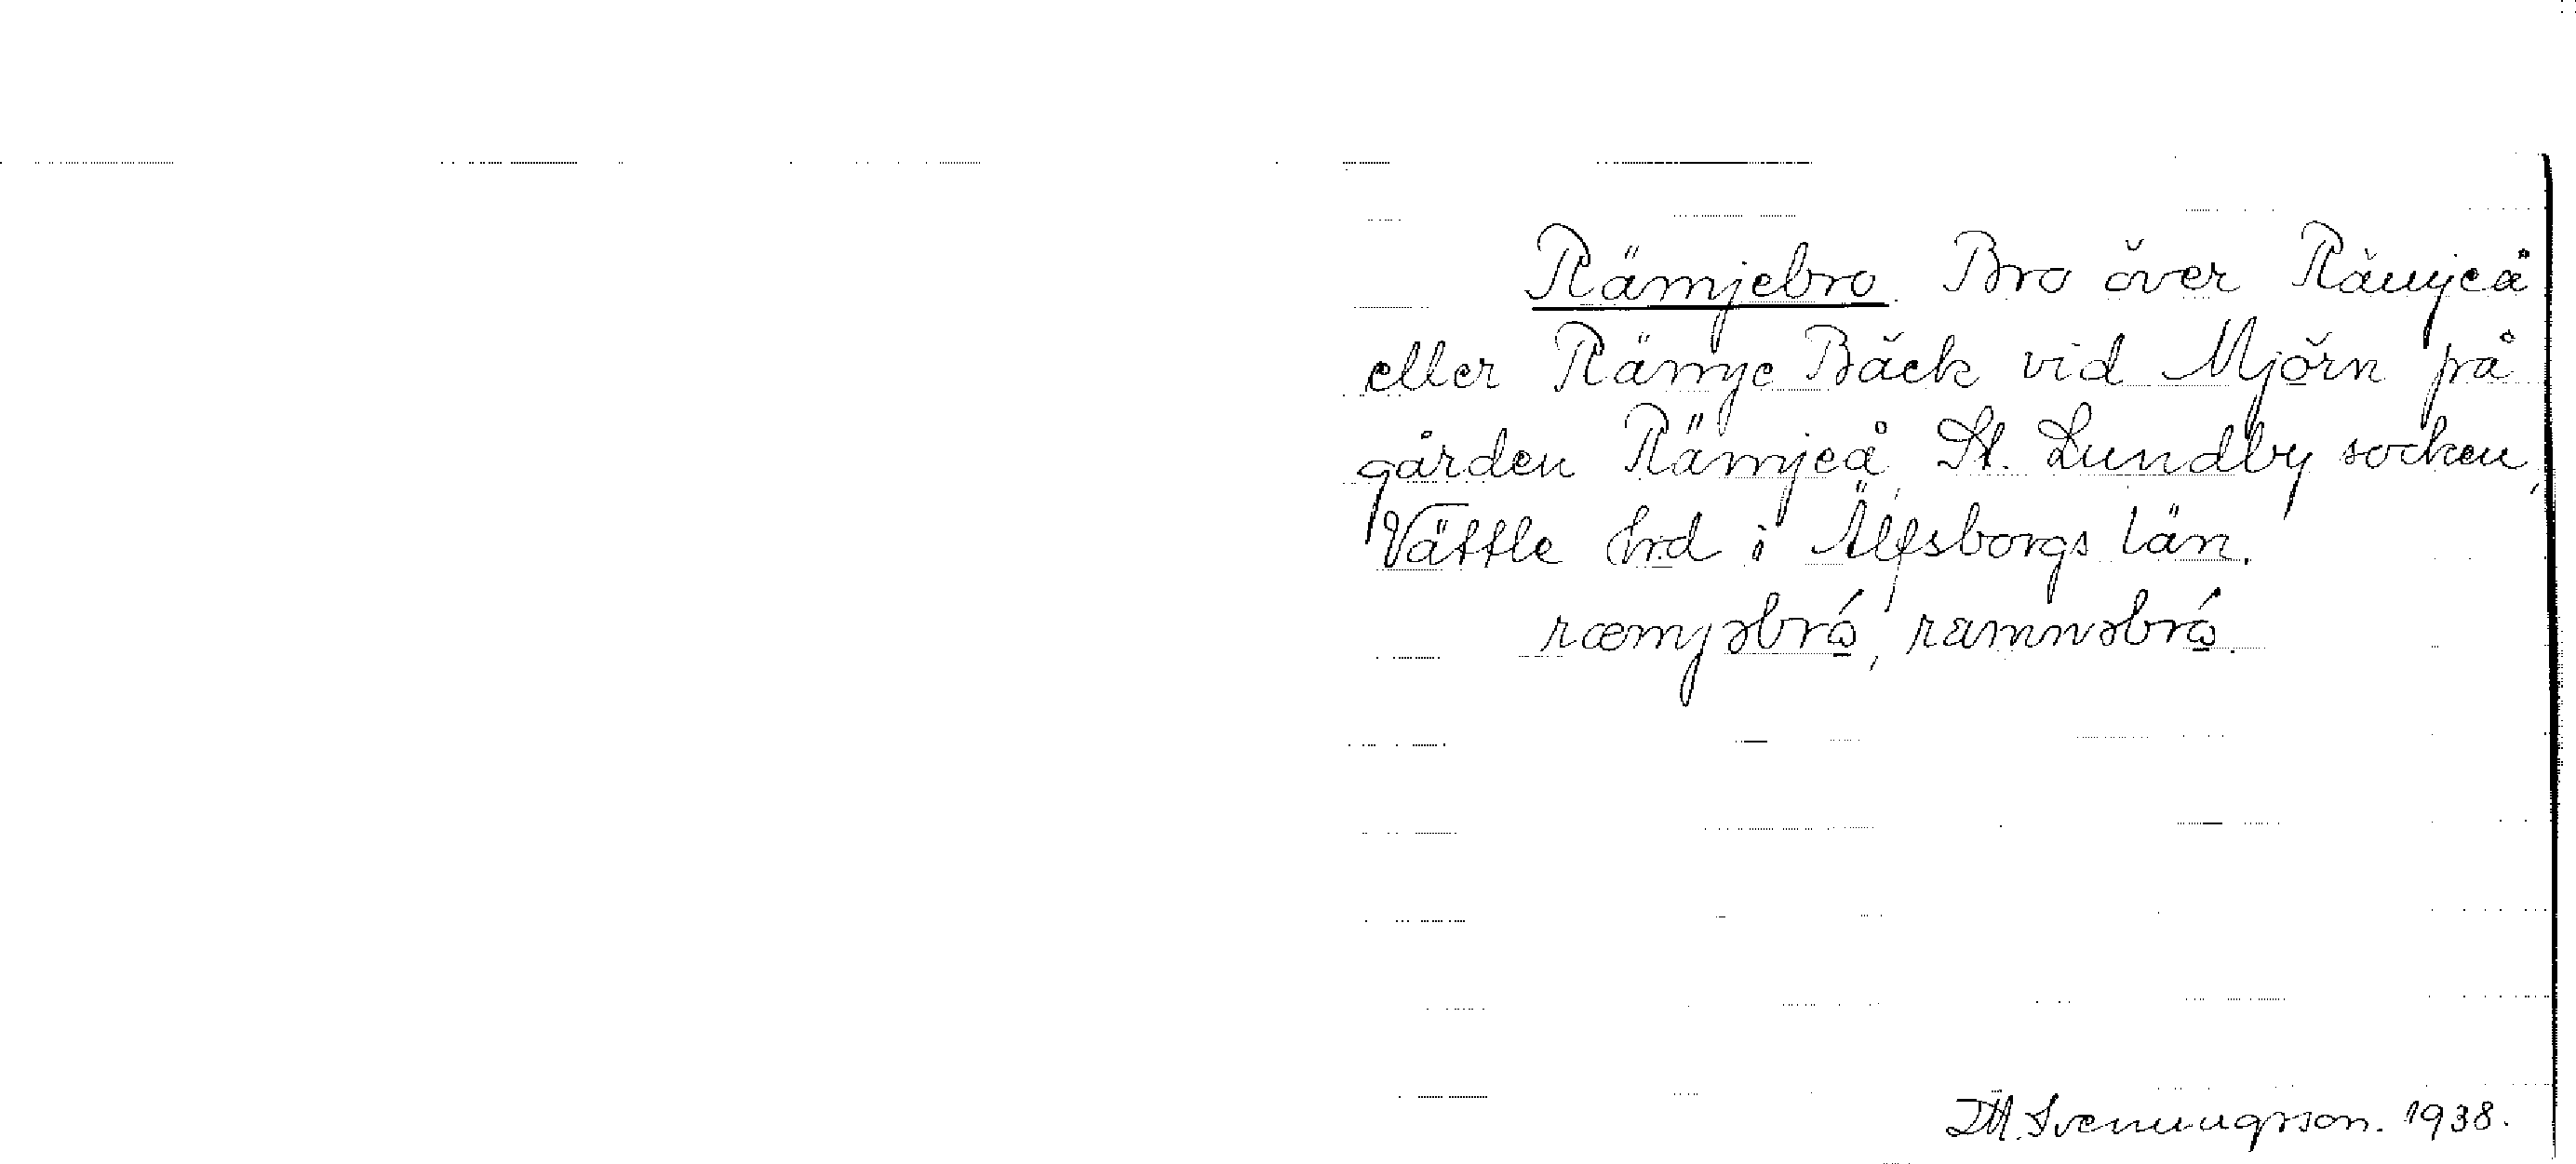 Rämjebro. Bro över Rämjeå
eller Rämje Bäck vid Mjörn på
gården Rämjeå, St. Lundby socken,
Vättle hrd i Älfsborgs län.
ræmjəbró̱, ramnəbró̱.
Svenungsson. 1938.